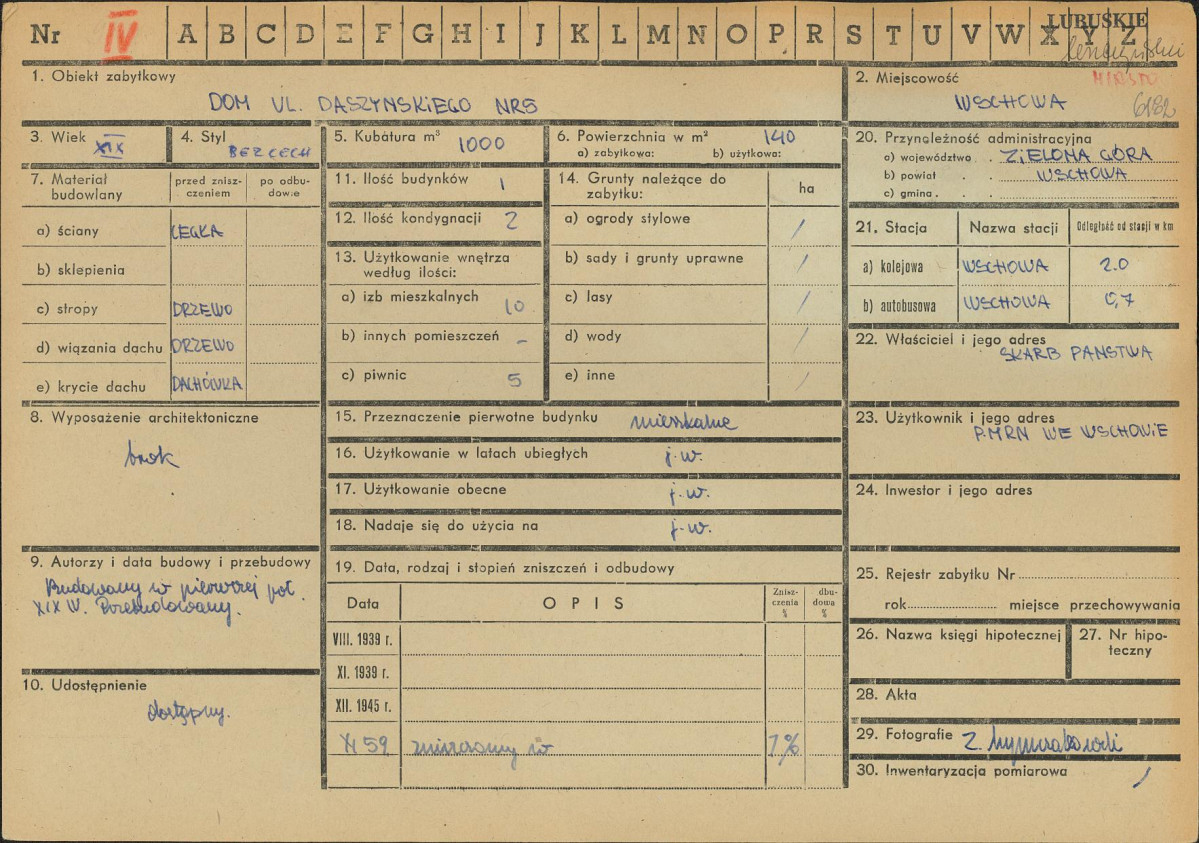 Nr IV A B C D E F G H I J K L M N O P R S T U V W X Y Z
LUBUSKIE
MIASTO
1. Obiekt zabytkowy
DOM UL. DASZYŃSKIEGO NR5
2. Miejscowość
WSCHOWA
3. Wiek XIX
4. Styl BEZ CECH
5. Kubatura m³ 1000
6. Powierzchnia w m² 140
a) zabytkowa: b) użytkowa:
7. Materiał budowlany
przed zniszczeniem
po odbudowie
a) ściany CEGŁA
b) sklepienia
c) stropy DRZEWO
d) wiązania dachu DRZEWO
e) krycie dachu DACHÓWKA
8. Wyposażenie architektoniczne
brak
9. Autorzy i data budowy i przebudowy
Budowany w pierwszej poł.
XIX W. Przebudowany.
10. Udostępnienie
dostępny.
11. Ilość budynków 1
12. Ilość kondygnacji 2
13. Użytkowanie wnętrza
według ilości:
a) izb mieszkalnych 10
b) innych pomieszczeń -
c) piwnic 5
14. Grunty należące do
zabytku:
ha
a) ogrody stylowe /
b) sady i grunty uprawne /
c) lasy /
d) wody /
e) inne /
15. Przeznaczenie pierwotne budynku mieszkalne
16. Użytkowanie w latach ubiegłych j.w.
17. Użytkowanie obecne j.w.
18. Nadaje się do użycia na j.w.
19. Data, rodzaj i stopień zniszczeń i odbudowy
Data OPIS Zniszczenia % dbudowa %
VIII. 1939 r.
XI. 1939 r.
XII. 1945 r.
XI 59 zniszczony w 7%
20. Przynależność administracyjna
a) województwo . ZIELONA GÓRA
b) powiat . . WSCHOWA
c) gmina . .
21. Stacja Nazwa stacji Odległość od stacji w km
a) kolejowa WSCHOWA 2.0
b) autobusowa WSCHOWA 0,7
22. Właściciel i jego adres
SKARB PAŃSTWA
23. Użytkownik i jego adres
P.MRN WE WSCHOWIE
24. Inwestor i jego adres
25. Rejestr zabytku Nr
rok miejsce przechowywania
26. Nazwa księgi hipotecznej
27. Nr hipoteczny
28. Akta
29. Fotografie Z.
30. Inwentaryzacja pomiarowa /